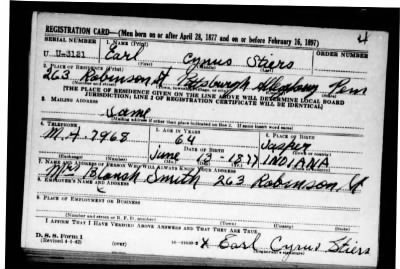 4
REGISTRATION CARD—(Men born on or after April 28, 1877 and on or before February 16, 1897)
SERIAL NUMBER 1. NAME (Print) ORDER NUMBER
U U-3121 Earl Cyrus Stiers
2. PLACE OF RESIDENCE (Print)
263 Robinson St Pittsburgh Allegheny Penn
[THE PLACE OF RESIDENCE GIVEN ON THE LINE ABOVE WILL DETERMINE LOCAL BOARD
JURISDICTION; LINE 2 OF REGISTRATION CERTIFICATE WILL BE IDENTICAL]
3. MAILING ADDRESS
Same
[Mailing address if other than place indicated on line 2. If same insert word same]
4. TELEPHONE 5. AGE IN YEARS 6. PLACE OF BIRTH
64 Jasper
DATE OF BIRTH (Town or county)
7968 June 13 - 1877 INDIANA
(Exchange) (Number) (Mo.) (Day) (Yr.) (State or country)
7. NAME AND ADDRESS OF PERSON WHO WILL ALWAYS KNOW YOUR ADDRESS
Mrs Blanch Smith 263 Robinson St
8. EMPLOYER'S NAME AND ADDRESS
9. PLACE OF EMPLOYMENT OR BUSINESS
(Number and street or R. F. D. number) (Town) (County) (State)
I AFFIRM THAT I HAVE VERIFIED ABOVE ANSWERS AND THAT THEY ARE TRUE.
D. S. S. Form 1
(Revised 4-1-42) (over) X Earl Cyrus Stiers
(Registrant's signature)